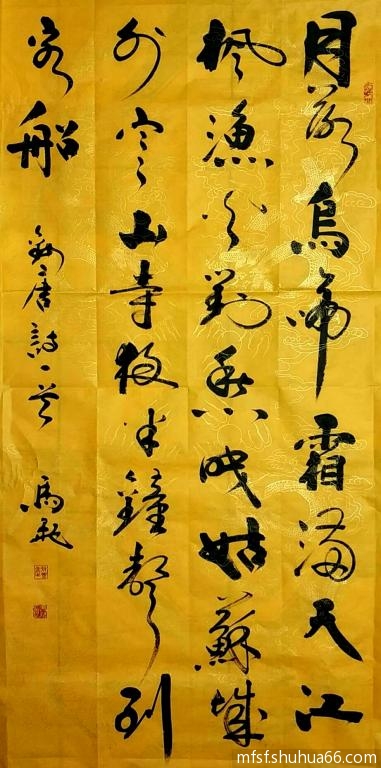 月落烏啼霜滿天江
楓漁火對愁眠姑蘇城
外寒山寺夜半鐘聲到
客船 錄唐詩一首 馬
www.mfsfshuhua66.com